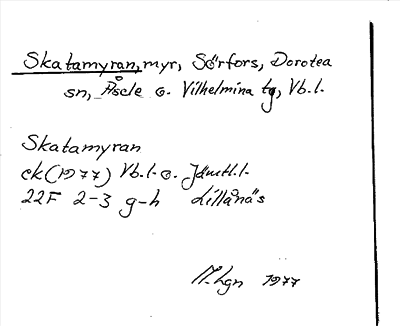 Skatamyran, myr, Sörfors, Dorotea
sn, Åsele o. Vilhelmina tg, Vb.l.
Skatamyran
ek (1977) Vb.l. o. Jämtl.l.
22F 2-3 g-h Lillånäs
hgn 1977